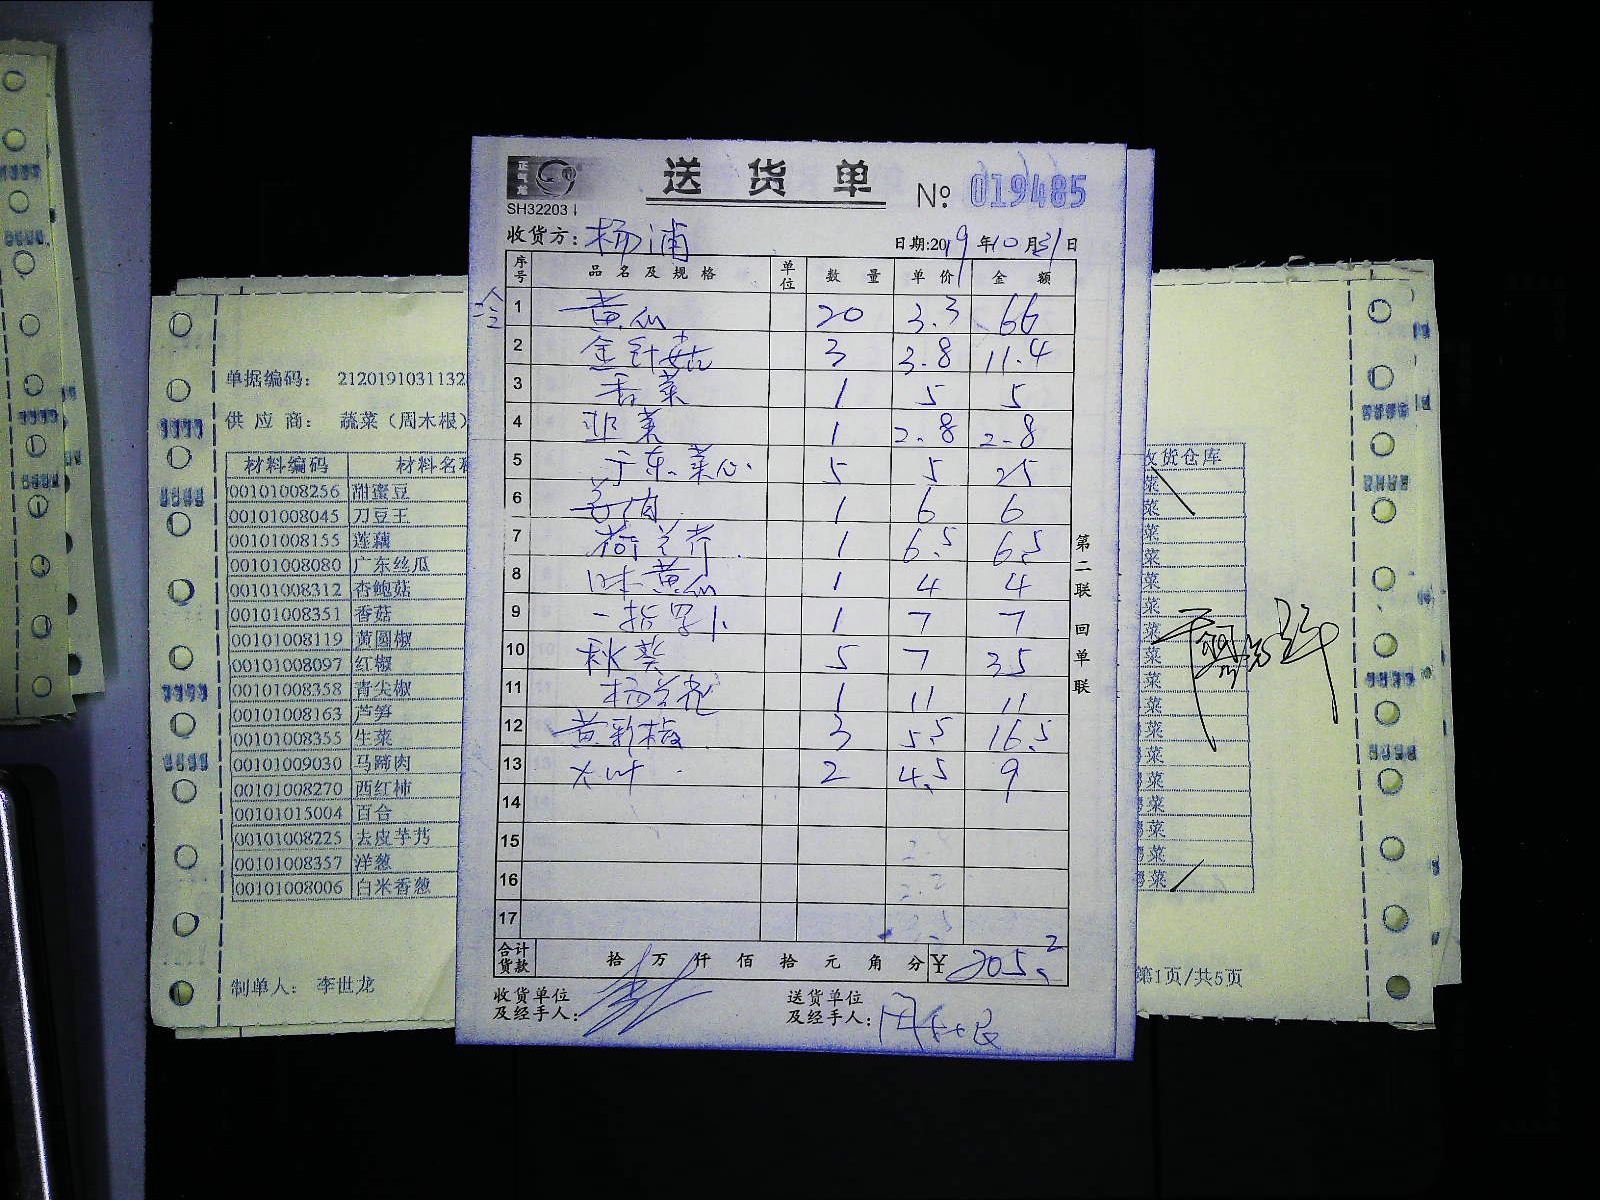 正气龙
送货单
No. 019485
SH32203
收货方: 杨浦
日期:2019年10月31日
序号 品名及规格 单位 数量 单价 金额
1 黄瓜 20 3.3 66
2 金针菇 3 3.8 11.4
3 香菜 1 5 5
4 韭菜 1 2.8 2.8
5 广东菜心 5 5 25
6 1 6 6
7 荷兰芹 1 6.5 6.5
8 黄瓜 1 4 4
9 1 7 7
10 秋葵 5 7 35
11 杨兰花 1 11 11
12 黄彩椒 3 5.5 16.5
13 大叶 2 4.5 9
14
15
16
17
合计货款 拾 万 仟 佰 拾 元 角 分 ¥ 205.2
收货单位及经手人:
送货单位及经手人: 周木根
第二联 回单联
单据编码: 2120191031132
供应商: 蔬菜(周木根)
材料编码 材料名称
00101008256 甜蜜豆
00101008045 刀豆王
00101008155 莲藕
00101008080 广东丝瓜
00101008312 杏鲍菇
00101008351 香菇
00101008119 黄圆椒
00101008097 红椒
00101008358 青尖椒
00101008163 芦笋
00101008355 生菜
00101009030 马蹄肉
00101008270 西红柿
00101015004 百合
00101008225 去皮芋艿
00101008357 洋葱
00101008006 白米香葱
制单人: 李世龙
收货仓库
菜
菜
菜
菜
菜
菜
菜
菜
菜
菜
菜
菜
菜
菜
菜
菜
菜
第1页/共5页